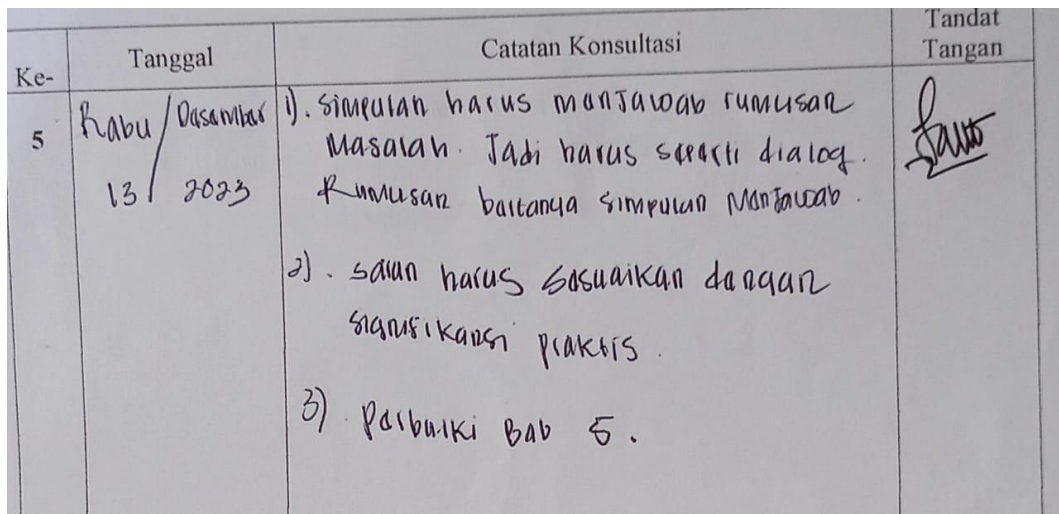 Ke-
Tanggal
Catatan Konsultasi
Tandat
Tangan
5
Rabu / Desember
13 / 2023
1). Simpulan harus menjawab rumusan
Masalah. Jadi harus seperti dialog.
Rumusan bertanya simpulan Menjawab.
2). Saran harus sesuaikan dengan
signifikansi praktis.
3) Perbaiki Bab 5.